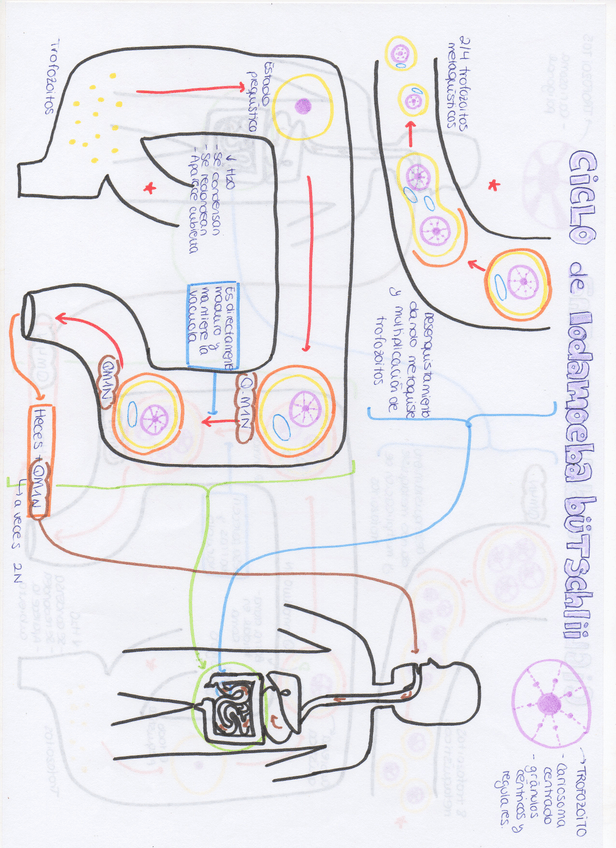 CICLO de Iodamoeba bütschlii
→ TROFOZOITO
- Cariosoma
centrado
- gránulos
céntricos y
regulares.
2/4 trofozoitos
metaquísticos
*
Desenquistamiento
dando metaquiste
y multiplicación de
trofozoitos
Estadio
prequístico
Trofozoitos
*
↓ H2O
- Se condensan
- Se redondean
- Aparece cubierta
Es directamente
maduro y
mantiene la
vacuola
QM1N
QM1N
Heces + QM1N
↳ a veces 2N